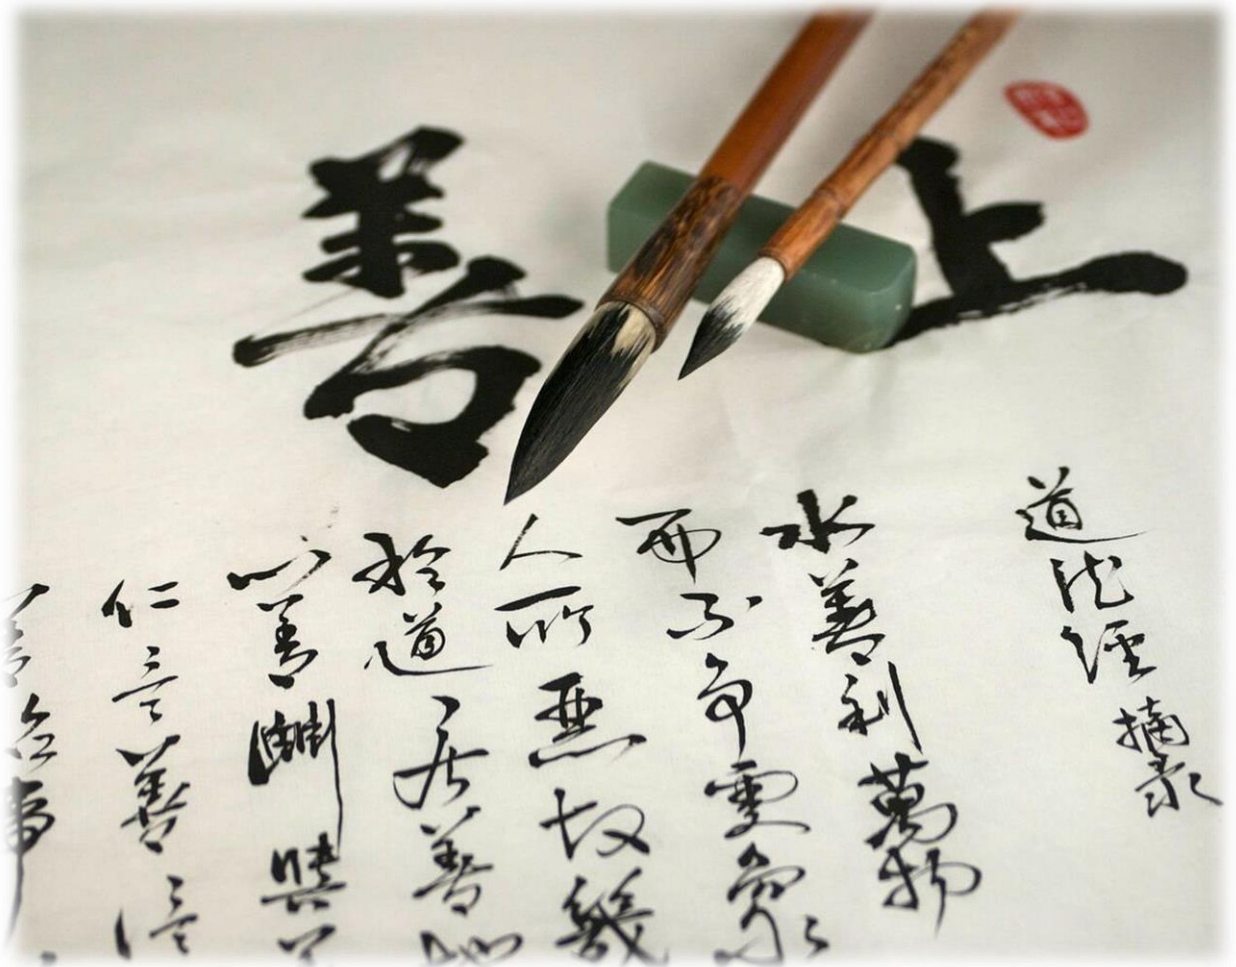 上善
道德經摘录
水善利萬物
而不争處眾
人所惡故幾
於道居善地
心善淵與善
仁言善信
善治事